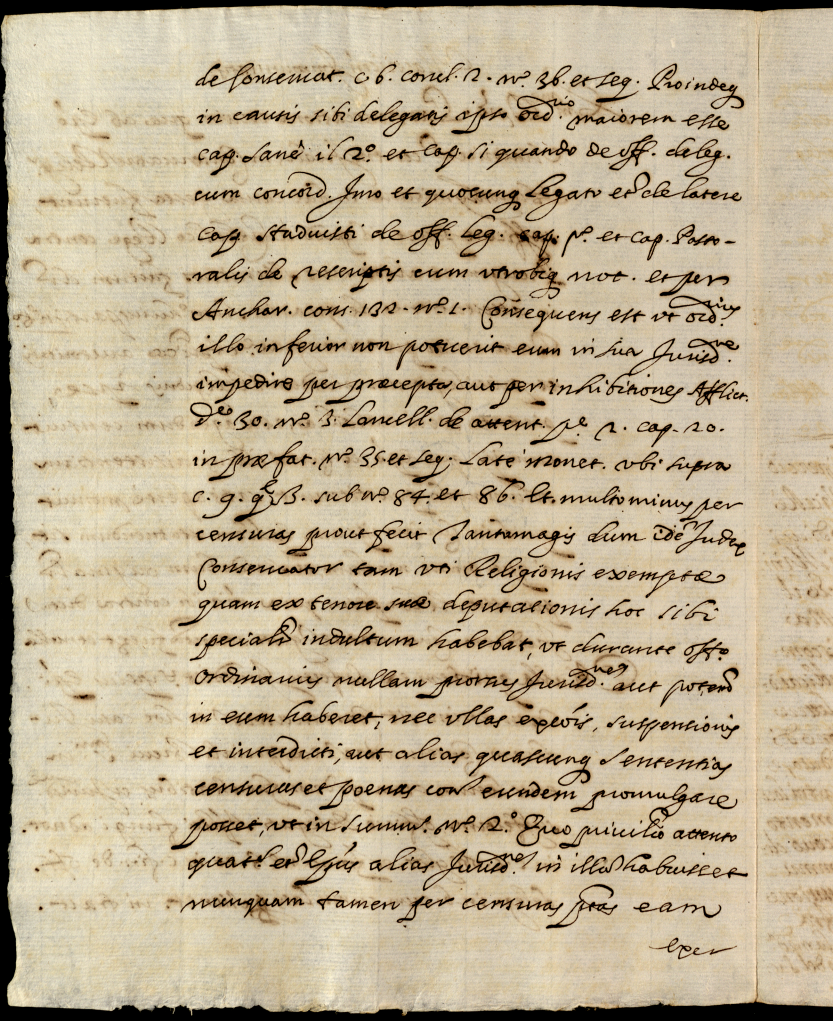 de Conseruat. c 6. concl. 2. nº. 36. et seq. Proindeq
in causis sibi delegatis ipso ord.rio maiorem esse
cap. sanè il 2º. et cap. si quando de off. deleg.
cum concord. Imo et quocunq Legato etc de latere
cap. studuisti de off. Leg. cap. pº. et cap. Pasto-
ralis de rescriptis cum utrobiq not. et per
Anchar. cons. 132. nº. 1. Consequens est ut ord.rius
illo inferior non potuerit eum in sua Jurisd.ne
impedire per præcepta, aut per inhibitiones Afflict.
d.º 30. nº. 3. Lancell. de attent. p.e 2. cap. 20.
in præfat. nº. 35. et seq. Latè Monet. ubi supra
c. 9. q. 3. sub nº. 84. et 86. Et multo minus per
censuras prout fecit Tantomagis dum idē Judex
Conseruator tam uti Religionis exemptæ
quam ex tenore suæ deputationis hoc sibi
specialr indultum habebat, ut durante offo.
Ordinarius nullam prorsus Jurisd.nem aut potem
in eum haberet, nec ullas excōis, suspensionis
et interdicti, aut alias quascunq sententias
censuras et poenas conr eundem promulgare
posset, ut in summ. nº. 2.º Quo priuilio attento
quat. etc Epūs alias Jurisd.nem in illū habuisset
nunquam tamen per censuras ptas eam
exer